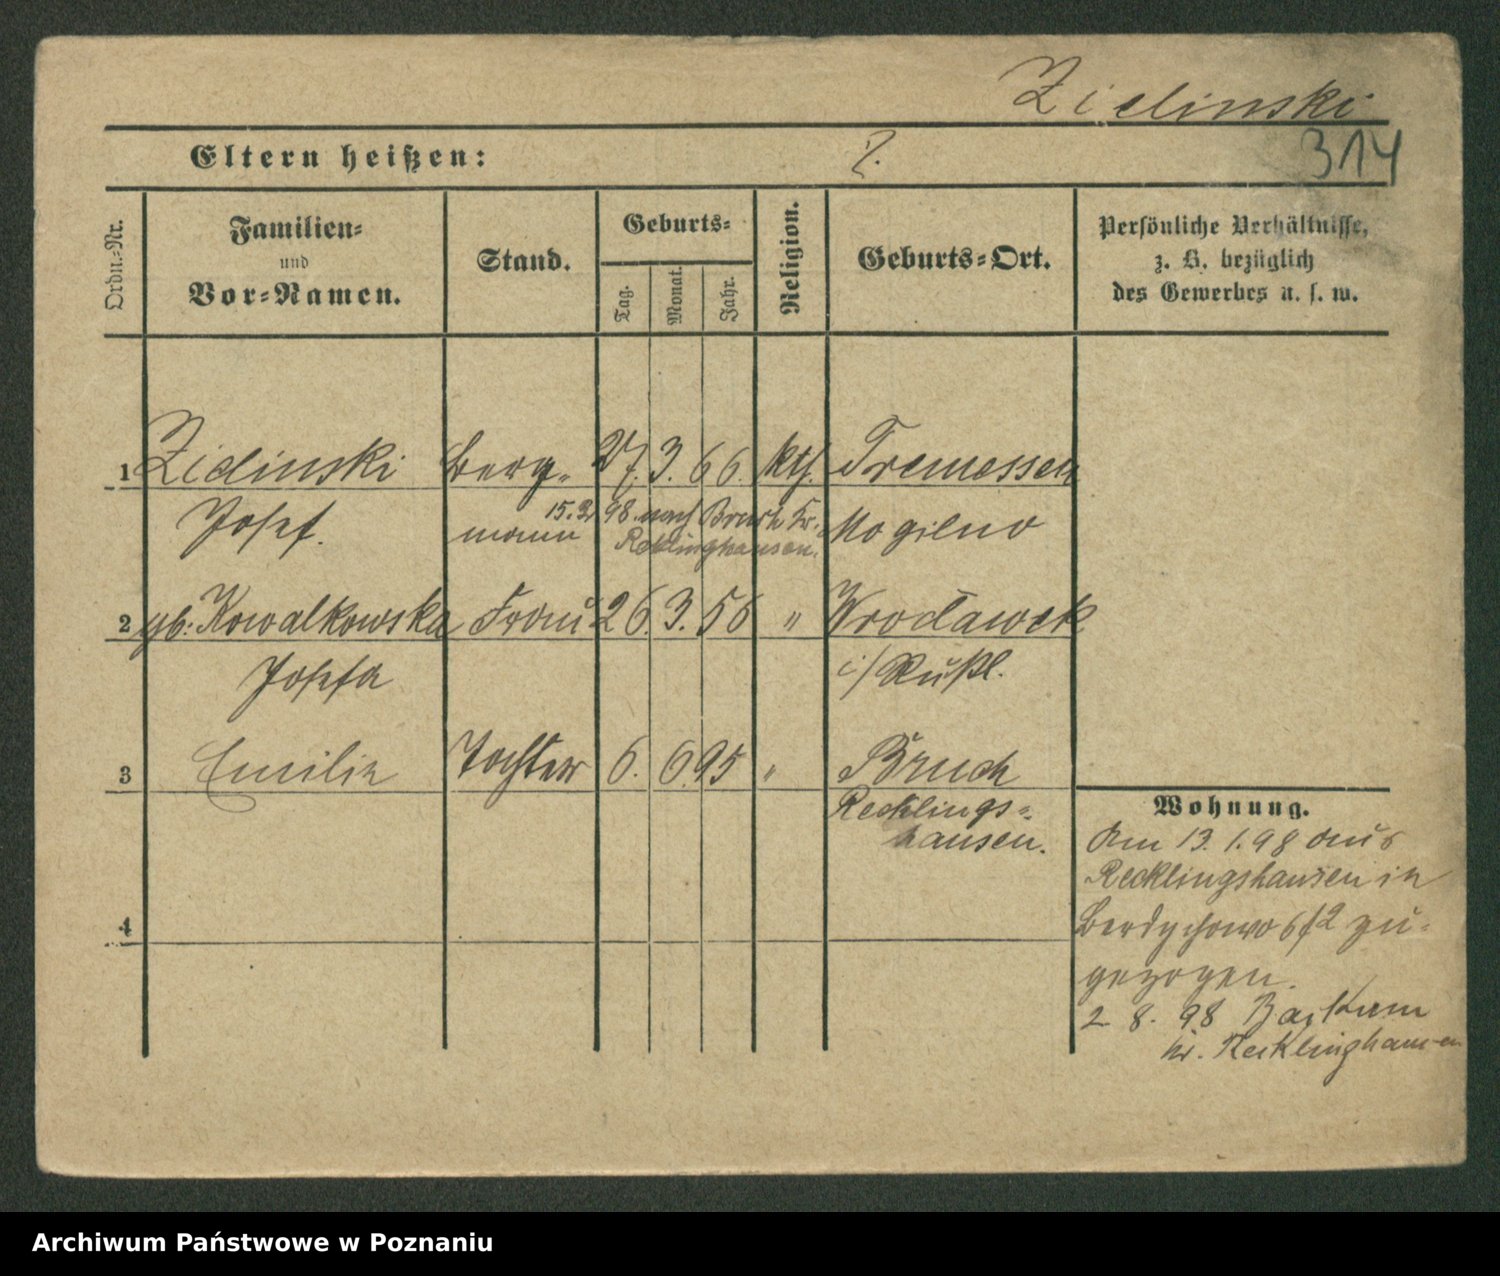 Zielinski
314
Eltern heißen: ?.
Ordn.-Nr.
Familien-
und
Vor-Namen.
Stand.
Geburts-
Tag.
Monat.
Jahr.
Religion.
Geburts-Ort.
Persönliche Verhältnisse,
z. B. bezüglich
des Gewerbes u. s. w.
1 Zielinski Berg- 27. 3. 66. kth. Tremessen
Josef. mann 15.3. 98. nach Bruch Kr. Mogilno
Recklinghausen.
2 gb: Kowalkowska Frau 26. 3. 56 " Wroclawek
Josefa i/ Rußl.
3 Emilie Tochter 6. 6. 95 " Bruch
Recklings-
hausen.
4
Wohnung.
Am 13. 1. 98 aus
Recklingshausen in
Berdychowo 6/2 zu-
gezogen.
2 8. 98
Kr. Recklinghausen
Archiwum Państwowe w Poznaniu